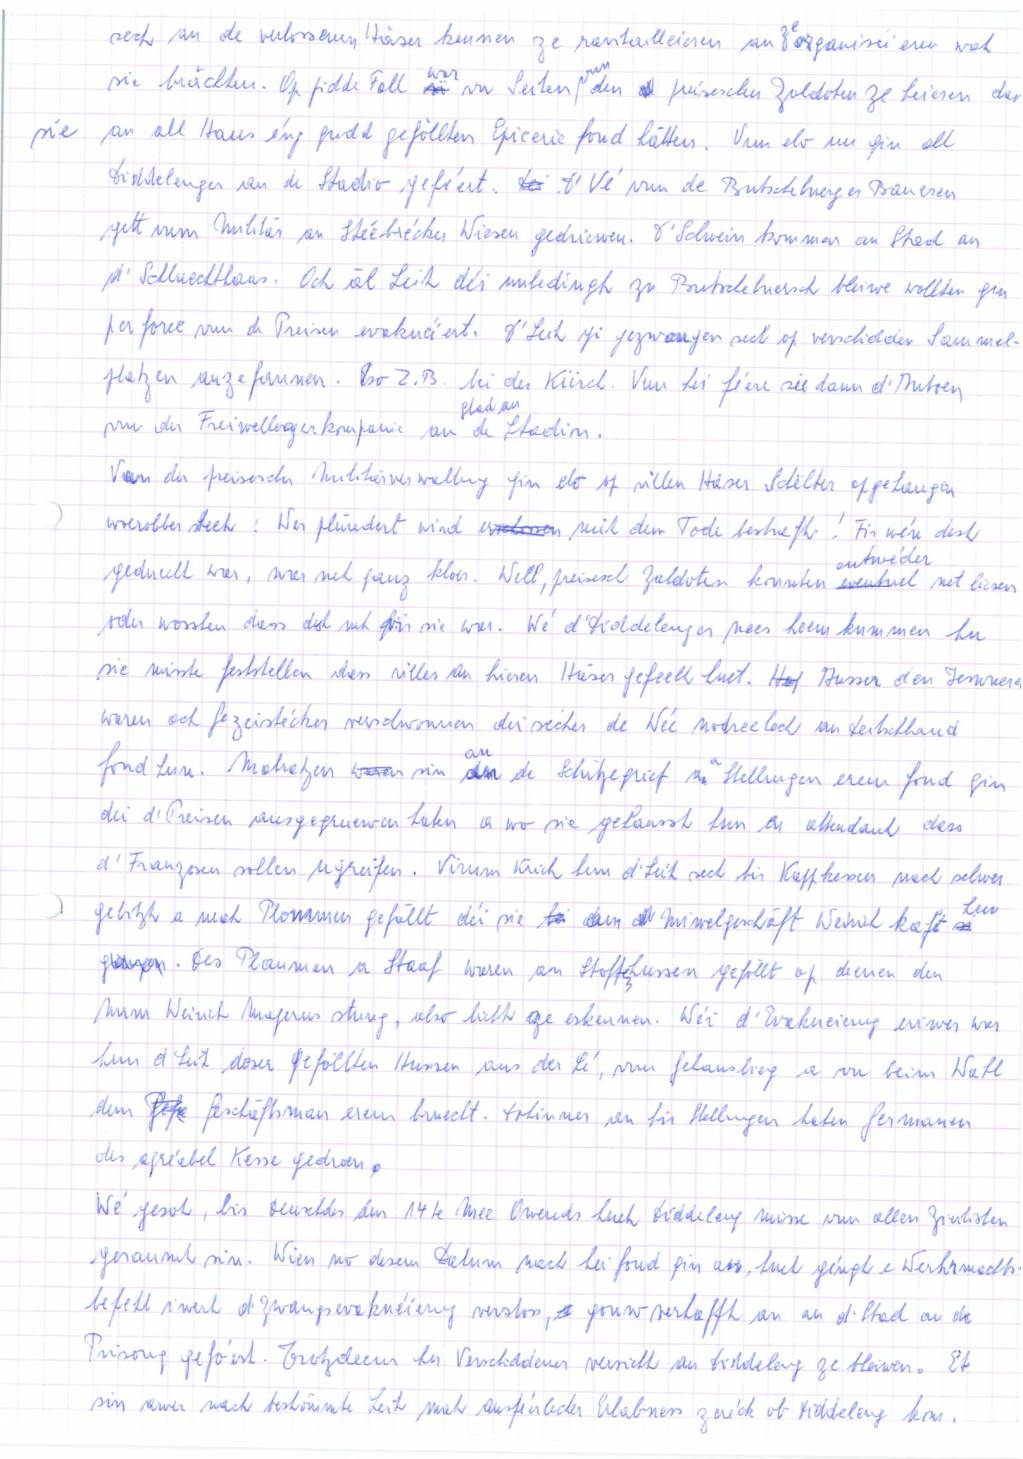 sech an de verlossenen Häser kennen ze ravitailleieren an ze organiséieren wat
sie bräichten. Op jidde Fall war vu Seiten vun den preiseschen Zaldoten ze héieren dass
sie an all Haus éng gudd gefëllten Epicerie fond hätten. Vun do un gin all
Diddelenger an de Stadio geféiert. D'Vé vun de Butschebuerger Baueren
gett vum Militär an Stéebrécker Wiesen gedriewen. D'Schwein kommen an Stad an
d'Schluechthaus. Och äl Leit déi unbedingt zu Butschebuersch bleiwe wollten gin
per force vun de Preisen evakuéiert. D'Leit gi gezwongen sech op verschidden Sammel-
platzen anzefannen. So z.B. bei der Kiirch. Vun hei féere sie dann d'Autoen
vun der Freiwellegerkompanie an de glad an Stadion.
Vun der preisescher Militärverwaltung gin do op villen Häser Schëlter opgehaangen
woerobber steet: Wer plündert wird mit dem Tode bestraft! Fir wéen dat
geduecht war, war net ganz kloer. Well, preisesch Zaldoten konnten entwéder net liesen
oder wossten dass dat net fir sie war. Wé d'Diddelenger nees heem kummen hu
sie misste feststellen dass villes an hieren Häiser gefeelt huet. Ausser den
waren och verschwonnen déi secher de Wée no an Deitschland
fond hun. Matratzen sin an de Schützegrief a Stellungen erem fond gin
déi d'Preisen ausgegruewen haten a wo sie gelauscht hun en attendant dass
d'Franzosen sollen ugreifen. Virum Krich hun d'Leit sech hir Kappkessen nach selwer
gebitzt a mat Plommen gefëllt déi sie am Miwelgeschäft Weirich kaft hun
. Des Plaumen a Staaf waren an Stoffhussen gefëllt op deenen den
Numm Weirich Magerus stung, also licht ze erkennen. Wéi d'Evakuéierung eriwer war
hun d'Leit dëser gefëllten Hussen aus der Lé, vum Gehaansbierg a vu beim Wall
dem Geschäftsman erem bruecht. Dohinner an hir Stellungen haten Germanen
des agréabel Kësse gedroen.
Wé gesot, bis Dënschdes den 14te Mee Owends huet Diddeleng misse vun allen Zivilisten
geraumt sin. Wien no desem Datum nach hei fond gin ass, huet géingt e Wehrmachts-
befehl iwert d'Zwangsevakuéierung verstoss, gouw verhafft an an d'Stad an de
Prisong geféiert. Trotzdeem hu Verschiddener versicht an Diddeleng ze bleiwen. Et
sin awer nach bestëmmte Leit mat ausféierlecher Erlabness zeréck ob Diddeleng kom.